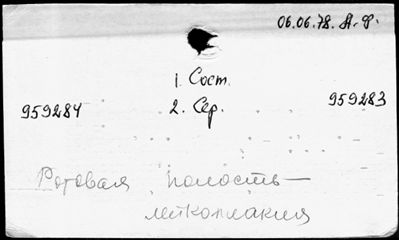 06.06.78. А.-Ф.
1. Сост.
959284 2. Сер. 959283
Ротовая полость —
лейкоплакия